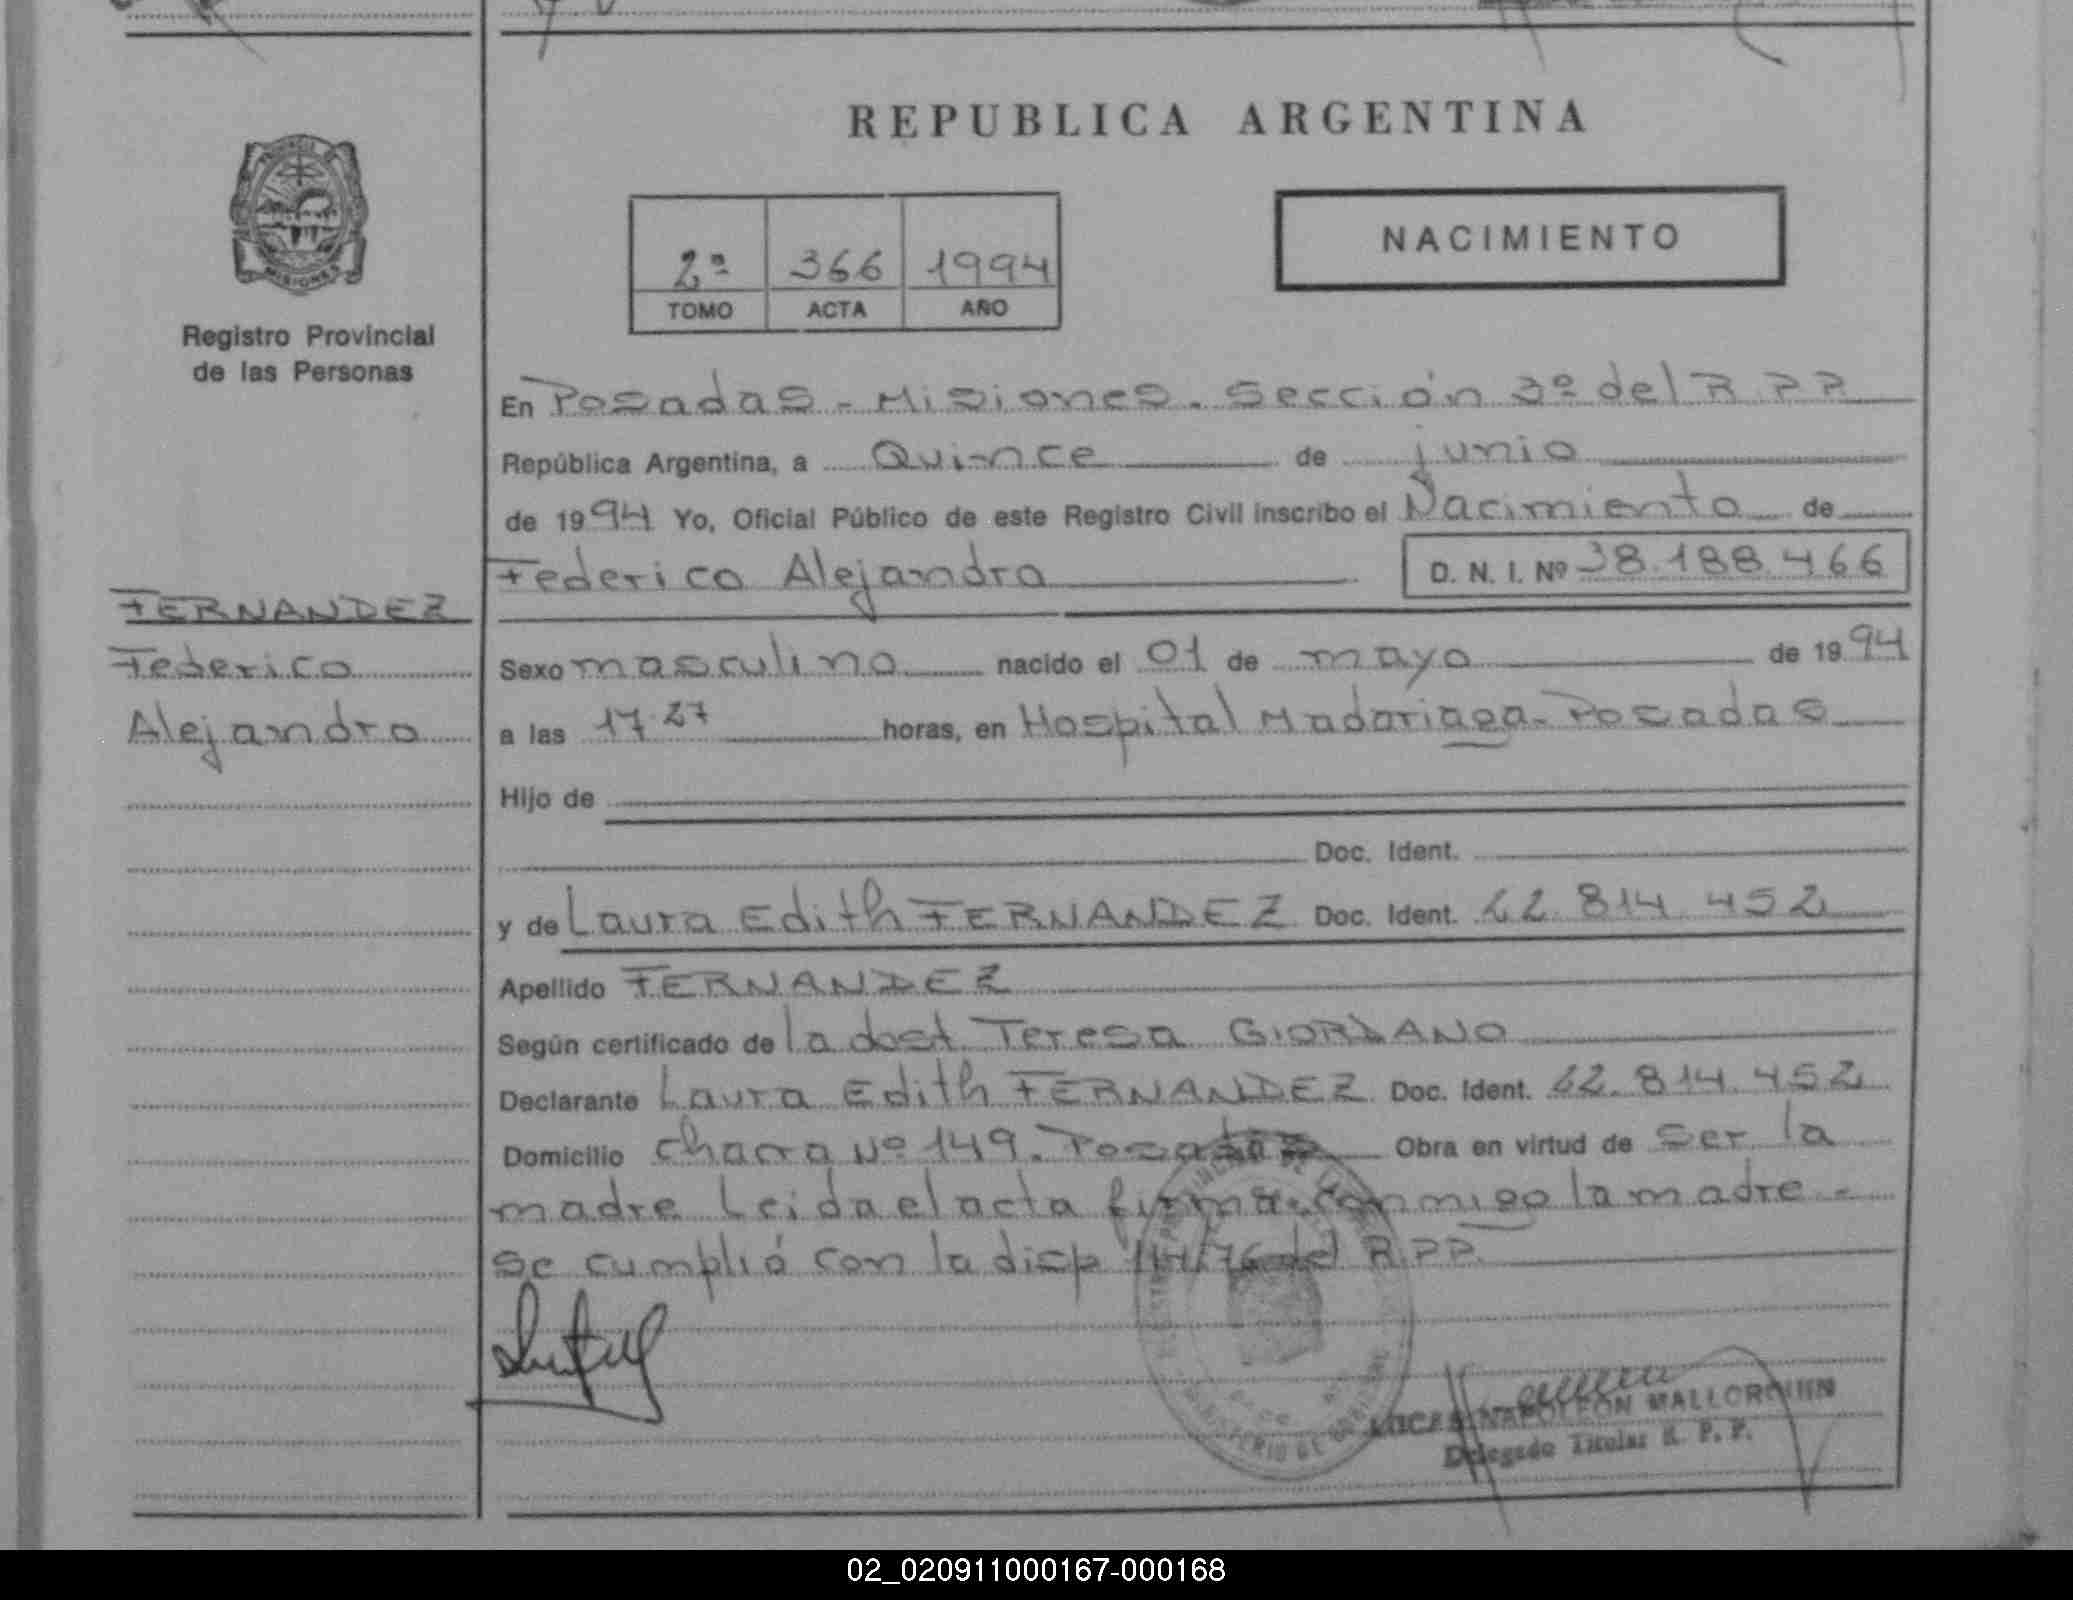 REPUBLICA ARGENTINA
PROVINCIA DE
MISIONES
Registro Provincial
de las Personas
NACIMIENTO
2ª 366 1994
TOMO ACTA AÑO
En Posadas - Misiones. Sección 3º del R.P.P.
República Argentina, a Quince de junio
de 1994 Yo, Oficial Público de este Registro Civil inscribo el Nacimiento de
Federico Alejandro D. N. I. Nº 38.188.466
FERNANDEZ
Federico
Alejandro
Sexo masculino nacido el 01 de mayo de 1994
a las 17.27 horas, en Hospital Madariaga - Posadas
Hijo de
Doc. Ident.
y de Laura Edith FERNANDEZ Doc. Ident. 22.814.452
Apellido FERNANDEZ
Según certificado de la obst. Teresa GIORDANO
Declarante Laura Edith FERNANDEZ Doc. Ident. 22.814.452
Domicilio chacra Nº 149. Posadas Obra en virtud de ser la
madre Leida el acta firma conmigo la madre -
se cumplió con la disp 114/76 del R.P.P.
MINISTERIO DE GOBIERNO
LUCAS NAPOLEON MALLORQUIN
Delegado Titular R. P. P.
02_020911000167-000168